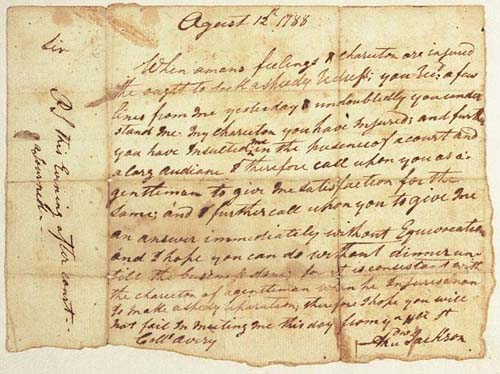 Agust 12th 1788
Sir
When amans feelings & charector are injured
he ought to seek aspeedy redress; you rec. a few
lines from me yesterday & undoubtedly you under
stand me. My charector you have Injured; and further
you have Insulted me in the presence of a court and
a larg audiane I therefore call upon you as a
gentleman to give me satisfaction for the
Same; and I further call upon you to give Me
an answer immediately without Equivocation
and I hope you can do without dinner un
till the business done; for it is consistant with
the charector of agentleman when he Injures aman
to make aspedy reparation; therefore I hope you will
not fail in meeting me this day from yr obt st
Andw Jackson
Collo Avery
P.S. This Evening after court
adjourned